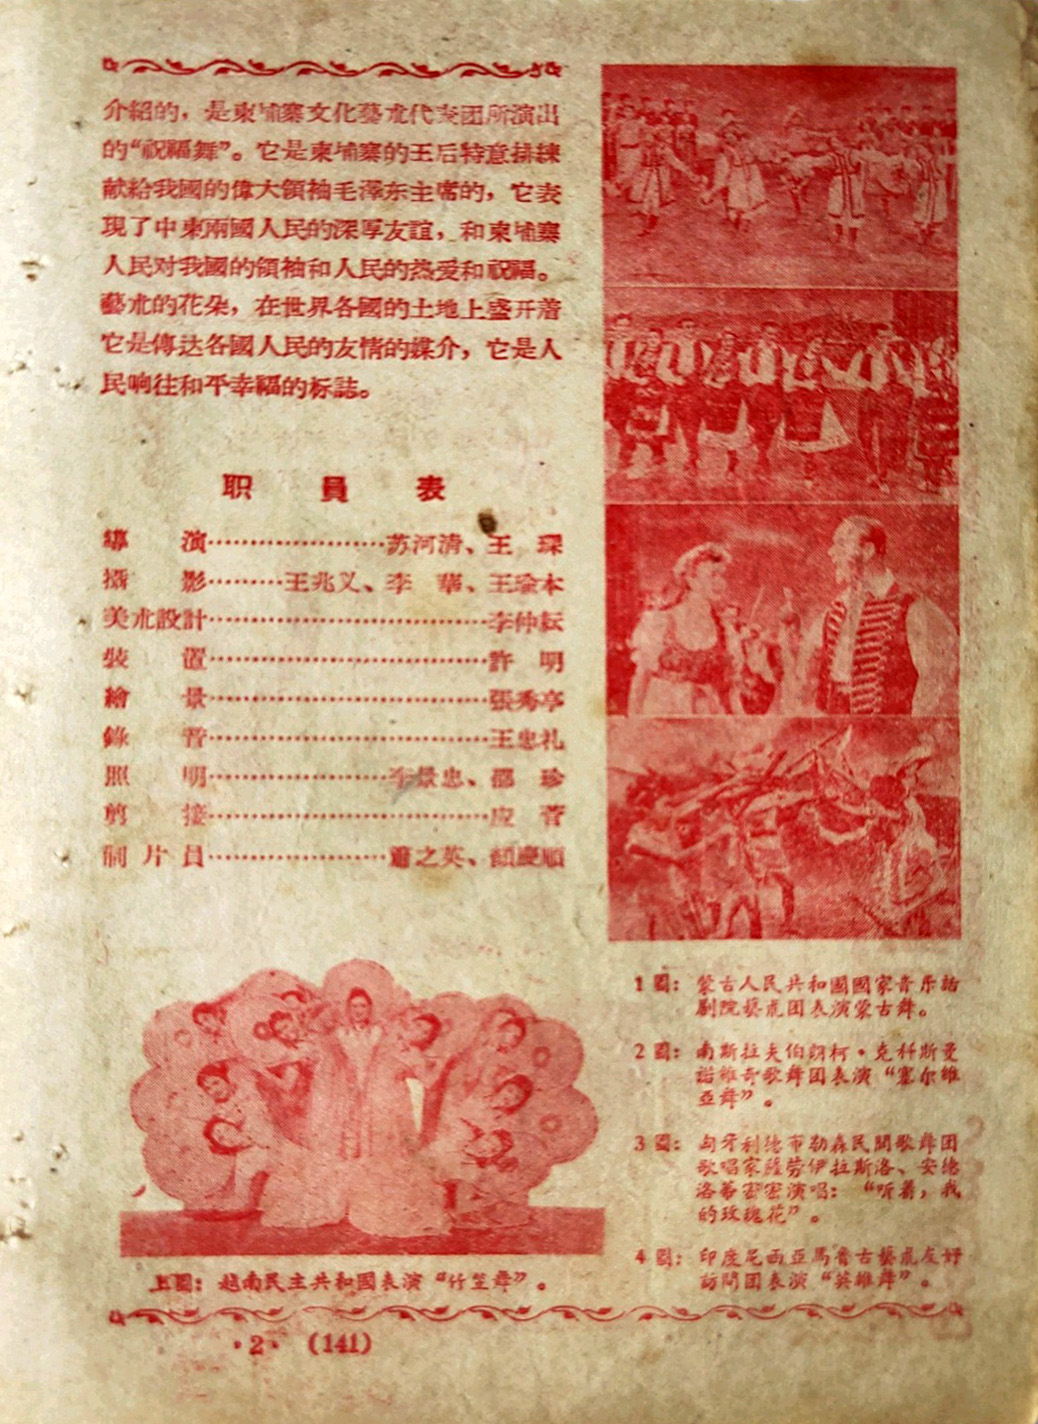 介紹的，是柬埔寨文化藝朮代表团所演出
的“祝福舞”。它是柬埔寨的王后特意排練
献給我國的偉大領袖毛澤东主席的，它表
現了中柬兩國人民的深厚友誼，和柬埔寨
人民对我國的領袖和人民的热爱和祝福。
藝朮的花朵，在世界各國的土地上盛开着
它是傳达各國人民的友情的媒介，它是人
民响往和平幸福的标誌。
职員表
導演……………………苏河清、王琛
攝影………王兆义、李華、王瑜本
美朮設計……………………李仲耘
裝置……………………許明
繪景……………………張秀亭
錄音……………………王忠礼
照明……………………李景忠、邵珍
剪接……………………应菅
制片員……………………簫之英、顏慶順
1圖：蒙古人民共和國國家音乐話
剧院藝朮团表演蒙古舞。
2圖：南斯拉夫伯朗柯·克利斯曼
諾維奇歌舞团表演“塞尔維
亞舞”。
3圖：匈牙利德布勒森民間歌舞团
歌唱家薩劳伊拉斯洛、安德
洛蒂密密演唱：“听着，我
的玫瑰花”。
4圖：印度尼西亞馬魯古藝朮友好
訪問团表演“英雄舞”。
上圖：越南民主共和國表演“竹笠舞”。
·2·（141）